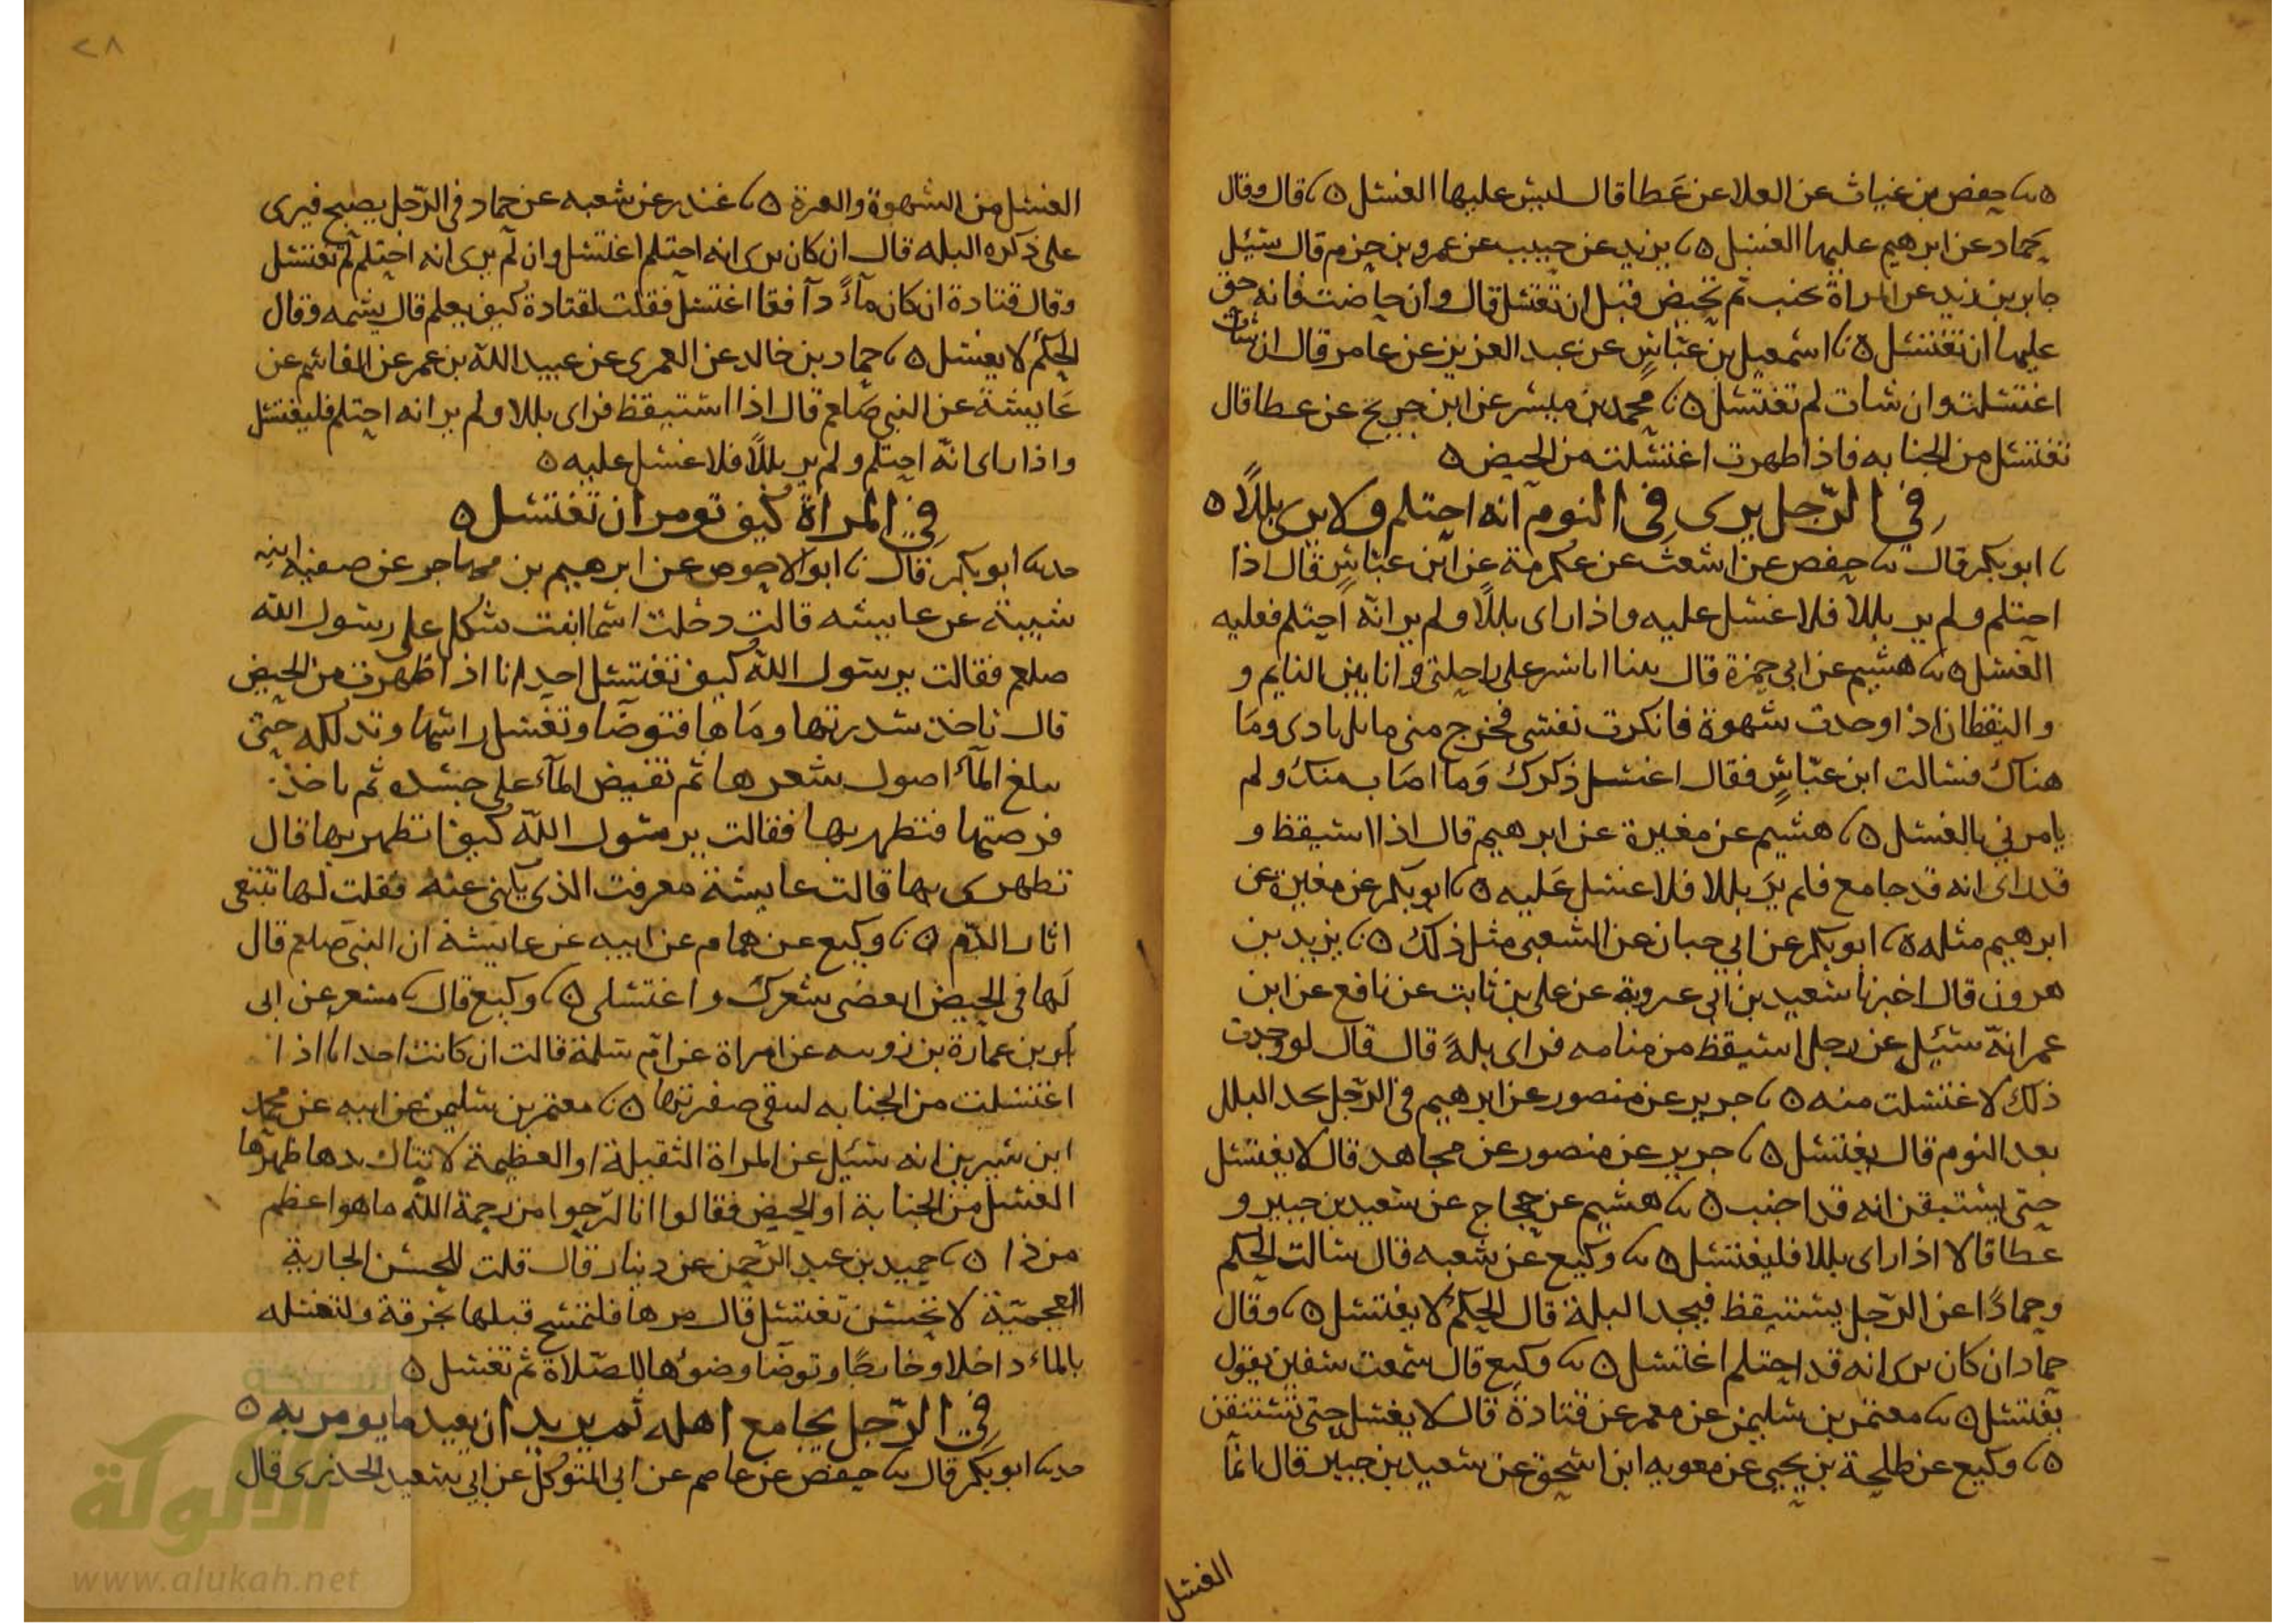 ثنا حفص بن غياث عن العلا عن عطا قال ليس عليها الغسل ٥ ثنا قال وقال
حماد عن ابرهيم عليها الغسل ٥ ثنا يزيد عن حبيب عن عمرو بن حزم قال سئل
جابر بن زيد عن المراة تجنب ثم تحيض قبل ان تغتسل قال وان حاضت فانه حق
عليها ان تغتسل ٥ ثنا اسمعيل بن عياش عن عبد العزيز عن عامر قال ان شات
اغتسلت وان شات لم تغتسل ٥ ثنا محمد بن ميسر عن ابن جريج عن عطا قال
تغتسل من الجنابه فاذا طهرت اغتسلت من الحيض ٥
في الرّجل يرى في النوم انه احتلم ولا يرى بللًا ٥
ثنا ابو بكر قال ثنا حفص عن اشعث عن عكرمة عن ابن عبّاس قال اذا
احتلم ولم ير بللا فلا غسل عليه واذا راى بللًا ولم ير انّه احتلم فعليه
الغسل ٥ ثنا هشيم عن ابي حمزة قال بينا انا اسير على راحلتي وانا بين النايم و
واليقظان اذ اوجدت شهوة فانكرت نفسى فخرج منى ما بل بادى وما
هناك فسالت ابن عبّاس فقال اغسل ذكرك وما اصاب منك ولم
يامرني بالغسل ٥ ثنا هشيم عن مغيرة عن ابرهيم قال اذا استيقظ و
قد راى انه قد جامع فلم يرَ بللا فلا غسل عَليه ٥ ثنا ابو بكر عن مغيرة عن
ابرهيم مثله ٥ ثنا ابو بكر عن ابي حيان عن الشعبى مثل ذلك ٥ ثنا يزيد بن
هرون قال اخبرنا سعيد بن ابي عروبة عن على بن ثابت عن نافع عن ابن
عمر انّه سئيل عن رجل استيقظ من منامه فراى بلةً قال قال لو وجدت
ذلك لاغتسلت منه ٥ ثنا جرير عن منصور عن ابرهيم في الرّجل يجد البلل
بعد النوم قال يغتسل ٥ ثنا جرير عن منصور عن مجاهد قال لا يغتسل
حتى يستيقن انه قد اجنب ٥ ثنا هشيم عن حجاج عن سعيد بن جبير و
عطا قالا اذا راى بللا فليغتسل ٥ ثنا وكيع عن شعبه قال سالت الحكم
وحمادًا عن الرّجل يستيقظ فيجد البلة قال الحكمُ لا يغتسل ٥ ثنا وقال
حماد ان كان يرى انه قد احتلم اغتسل ٥ ثنا وكيع قال سمعت سفين يقول
يغتسل ٥ ثنا معتمر بن سليمن عن معمر عن قتادة قال لا يغسل حتى يستيقن
٥ ثنا وكيع عن طلحة بن يحيى عن معويه ابن اسحق عن سعيد بن جبير قال انمّا
الغسل
٢٨
الغسل من الشهوة والفترة ٥ ثنا غندر عن شعبه عن حماد في الرّجل يصبح فيرى
على ذكره البله قال ان كان يرى انه احتلم اغتسل وان لم يرى انه احتلم لم يغتسل
وقال قتادة ان كان مآءً دآفقا اغتسل فقلت لقتادة كيف يعلم قال يشمه وقال
الحكمُ لا يغتسل ٥ ثنا حماد بن خالد عن العمرى عن عبيد اللّه بن عمر عن القاسم عن
عَايشة عن النبي صَلعم قال اذا استيقظ فراى بللا ولم ير انه احتلم فليغتسل
واذا راى انّه احتلم ولم ير بللًا فلا غسل عليه ٥
في المراة كيف تومر ان تغتسل ٥
حدثنا ابو بكر قال ثنا ابو الاحوص عن ابرهيم بن مهاجر عن صفيه ابنه
شيبة عن عايشه قالت دخلت اسما ابنت شكل على رسول اللّه
صلعم فقالت يرسول اللّه كيف تغتسل احدانا اذا طهرت من الحيض
قال تاخذ سدرتها ومَاها فتوضّا وتغسل راسها وتدلكه حتّى
يبلغ المآء اصول شعرها ثم تفيض المآء على جسده ثم تاخذ
فرصتها فتطهر بها فقالت يرسول اللّه كيف اتطهر بها قال
تطهرى بها قالت عايشة معرفت الذى يكنى عنه فقلت لها تتبعى
اثار الدّم ٥ ثنا وكيع عن همام عن ابيه عن عايشة ان النبى صلعم قال
لَها في الحيض انقضى شعرك واغتسلى ٥ ثنا وكيع قال ثنا مسعر عن ابى
بكر بن عمارة بن رويبه عن امراة عن ام سلمة قالت ان كانت احدانا اذا
اغتسلت من الجنابه لتبقى ضفرتها ٥ ثنا معتمر بن سليمن عن ابيه عن محمّد
ابن سيرين انه سئيل عن المراة الثقيلة او العظيمة لا تنال يدها ظهرها
الغسل من الجنابة او الحيض فقالوا انا لنرجوا من رحمة اللّه ما هو اعظم
من ذا ٥ ثنا حميد بن عبد الرّحمن عن دينار قال قلت للحسن الجارية
العجميّة لا تحسن تغتسل قال مرها فلتمسح قبلها بخرقة ولتغسله
بالماء داخلا وخارجًا وتوضّا وضوءها للصّلاة ثم تغسل ٥
في الرّجل يجامع اهله ثم يريد ان يعيد ما يومر به ٥
حدثنا ابو بكر قال ثنا حفص عن عاصم عن ابى المتوكل عن ابى سعيد الخدرى قال
شبكة
الألوكة
www.alukah.net